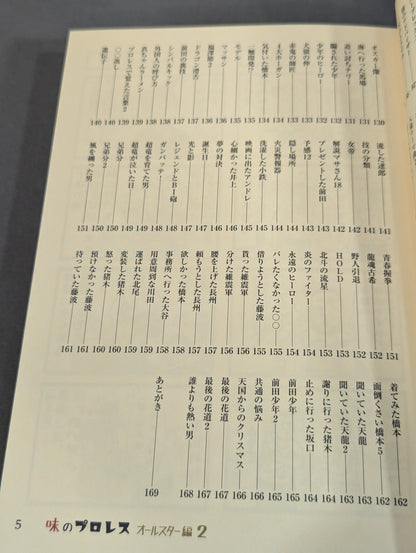 オスカー像 130
海へ行った馬場 131
追い討ちテリー 131
騙された少年 132
少年のヒーロー 132
犬猿の仲 133
赤鬼の師匠 133
4大ホーガン 134
気付いた橋本 134
一触即発!? 135
モデル 135
マッサン 136
福澤節2 136
ドラゴン 137
前田の裏技 137
シンバルキック 138
外国人の呼び方 138
ちゃんラーメン 139
プロレスで覚えた言葉2 139
○○流し 140
遺伝子 140
流した達郎 141
技の分類 141
女帝 142
解説マサさん18 142
プレゼントした前田 143
予感12 143
隠し場所 144
火災警報器 144
洗濯した小鉄 145
映画に出たアンドレ 145
心細かった井上 146
夢の対決 146
誕生日 147
光と影 147
レジェンドとBI砲 148
ガンバッテ 148
超竜を育てた男 149
超竜が泣いた日 149
兄弟分 150
兄弟分2 150
風を纏った男 151
青春握拳 151
龍魂古希 152
野人引退 152
HOLD 153
北斗の流星 153
炎のファイター 154
永遠のヒーロー 154
バレたくなかった○○ 155
借りようとした藤波 155
貰った維震軍 156
分けた維震軍 156
腰を上げた長州 157
頼もうとした長州 157
欲しかった橋本 158
事務所へ行った大谷 158
用意周到な川田 159
運ばれた北尾 159
変装した猪木 160
怒った猪木 160
預けなかった藤波 161
待っていた藤波 161
着てみた橋本 162
面倒くさい橋本5 162
聞いていた天龍 163
聞いていた天龍2 163
謝りに行った猪木 164
止めに行った坂口 164
前田少年 165
前田少年2 165
共通の悩み 166
天国からのクリスマス 166
最後の花道 167
最後の花道2 167
誰よりも熱い男 168
あとがき 169
5 味のプロレス オールスター編 2